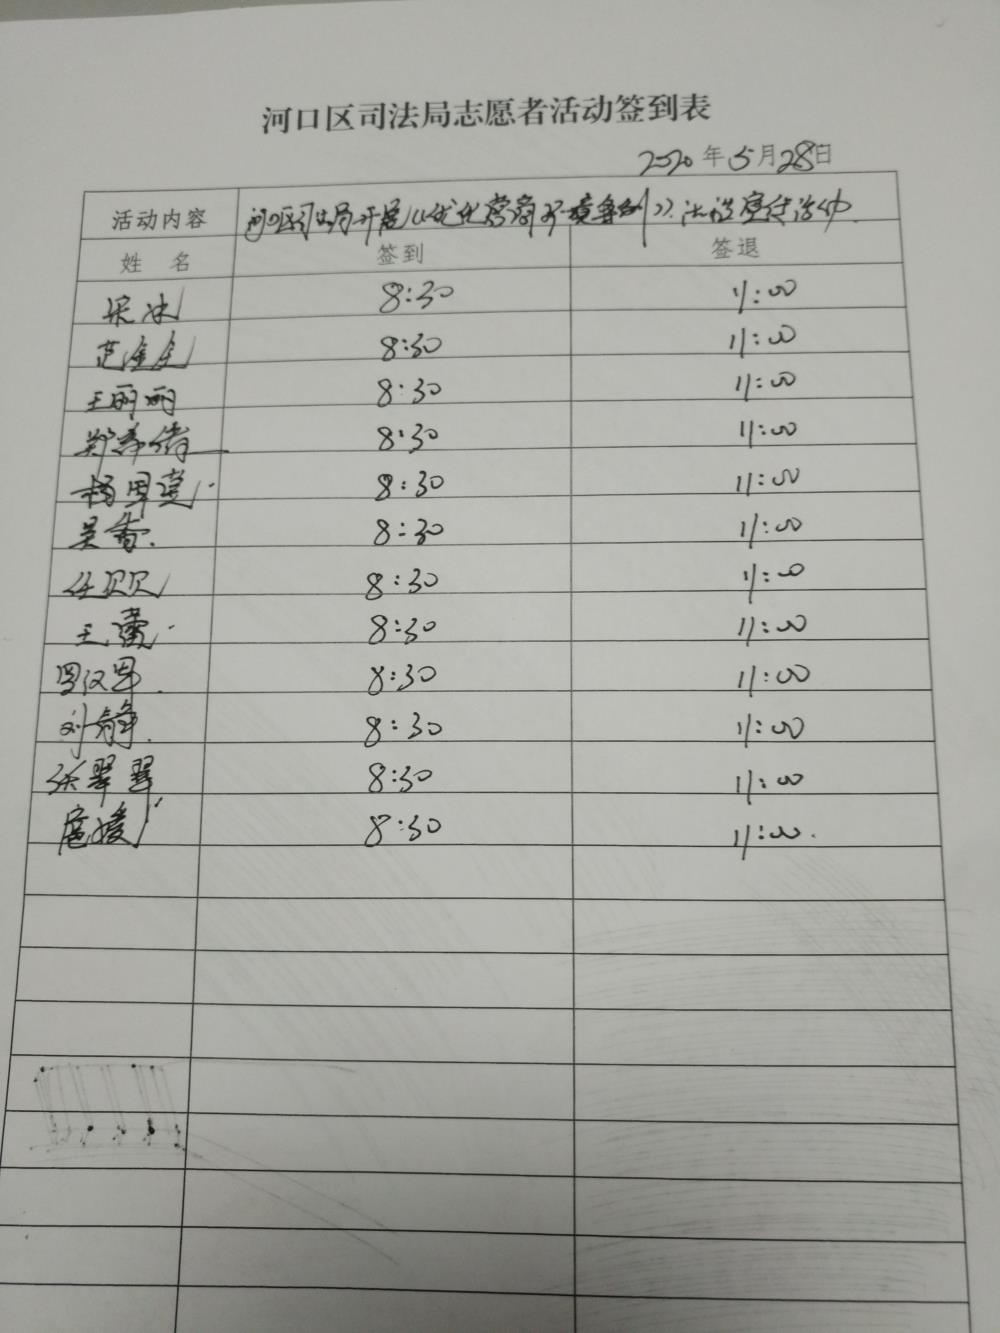 河口区司法局志愿者活动签到表
2020年5月28日
活动内容 河口区司法局开展《优化营商环境条例》法治宣传活动
姓 名 签到 签退
宋冰 8:30 11:00
范金全 8:30 11:00
王丽丽 8:30 11:00
郑 倩 8:30 11:00
杨 8:30 11:00
吴香 8:30 11:00
任贝贝 8:30 11:00
王蕾 8:30 11:00
罗汉军 8:30 11:00
刘静 8:30 11:00
张翠翠 8:30 11:00
扈媛 8:30 11:00